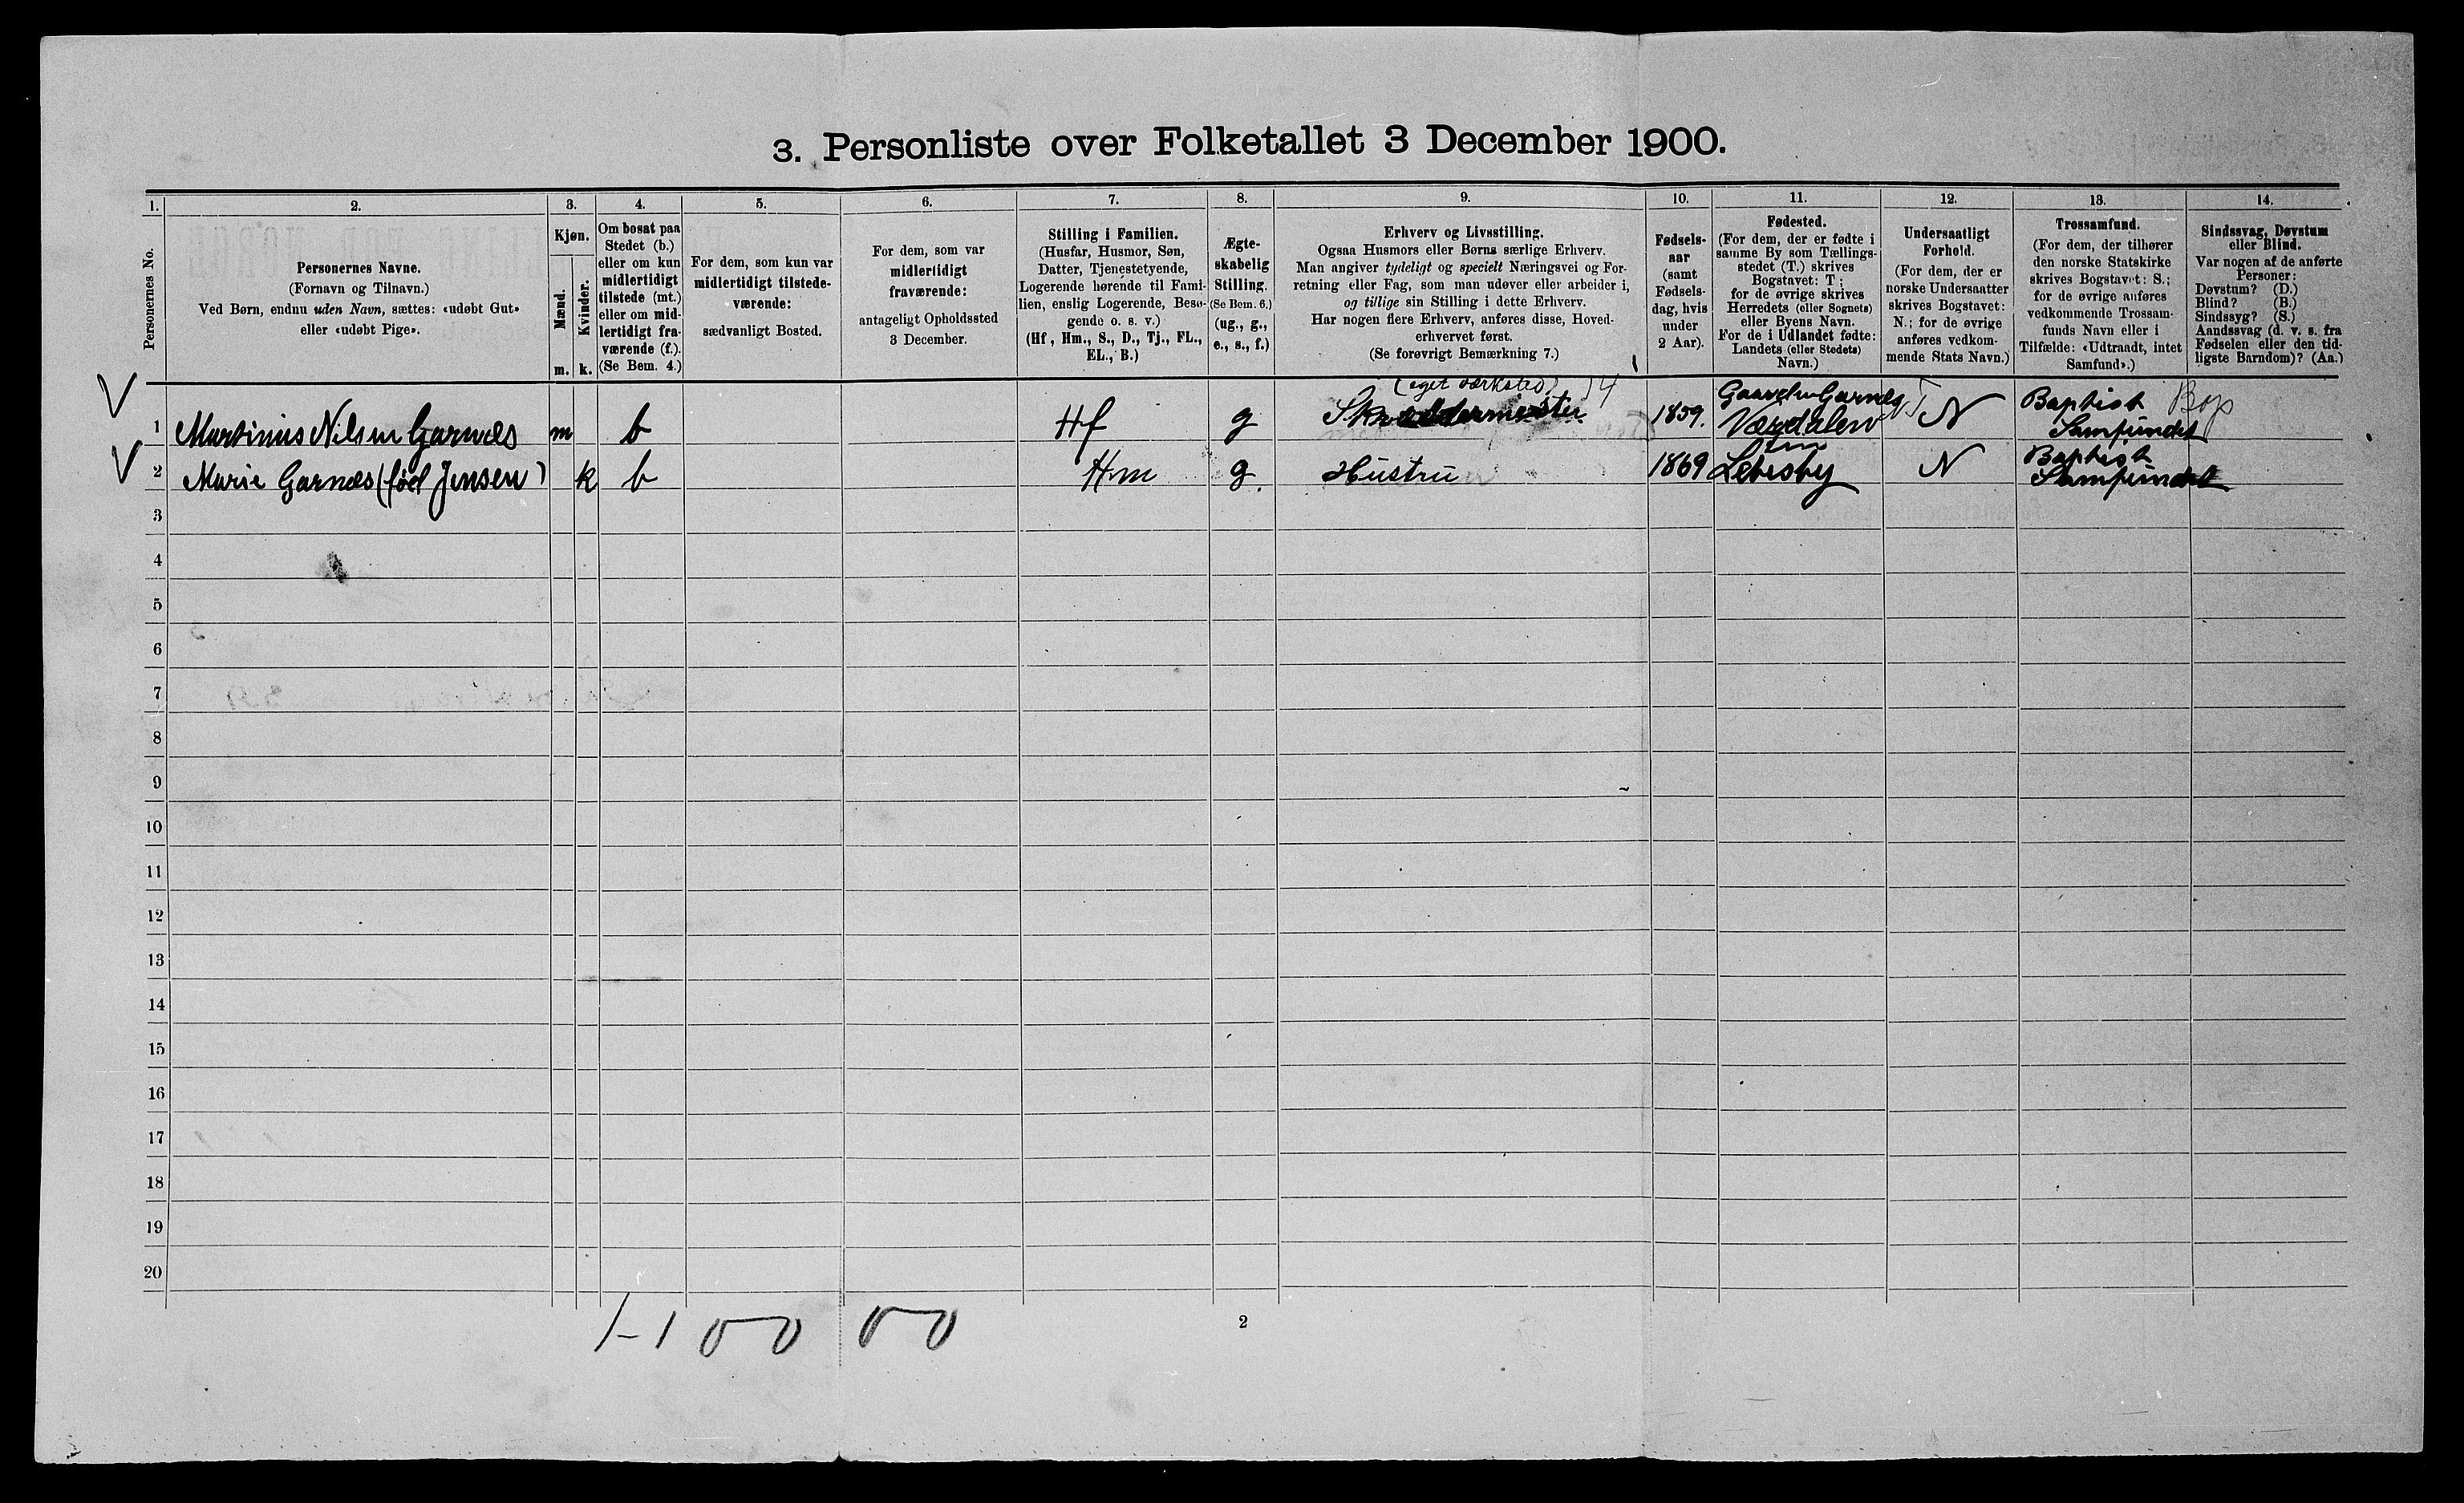 3. Personliste over Folketallet 3 December 1900.
1. 2. 3. 4. 5. 6. 7. 8. 9. 10. 11. 12. 13. 14.
Personernes No.
Personernes Navne.
(Fornavn og Tilnavn.)
Ved Børn, endnu uden Navn, sættes: «udøbt Gut»
eller «udøbt Pige».
Kjøn.
Mænd.
Kvinder.
m. k.
Om bosat paa
Stedet (b.)
eller om kun
midlertidigt
tilstede (mt.)
eller om mid-
lertidigt fra-
værende (f.).
(Se Bem. 4.)
For dem, som kun var
midlertidigt tilstede-
værende:
sædvanligt Bosted.
For dem, som var
midlertidigt
fraværende:
antageligt Opholdssted
3 December.
Stilling i Familien.
(Husfar, Husmor, Søn,
Datter, Tjenestetyende,
Logerende hørende til Fami-
lien, enslig Logerende, Besø-
gende o. s. v.)
(Hf, Hm., S., D., Tj., FL.,
EL., B.)
Ægte-
skabelig
Stilling.
(Se Bem. 6.)
(ug., g.,
e., s., f.)
Erhverv og Livsstilling.
Ogsaa Husmors eller Børns særlige Erhverv.
Man angiver tydeligt og specielt Næringsvei og For-
retning eller Fag, som man udøver eller arbeider i,
og tillige sin Stilling i dette Erhverv.
Har nogen flere Erhverv, anføres disse, Hoved-
erhvervet først.
(Se forøvrigt Bemærkning 7.)
Fødsels-
aar
(samt
Fødsels-
dag, hvis
under
2 Aar).
Fødested.
(For dem, der er fødte i
samme By som Tællings-
stedet (T.) skrives
Bogstavet: T;
for de øvrige skrives
Herredets (eller Sognets)
eller Byens Navn.
For de i Udlandet fødte:
Landets (eller Stedets)
Navn.)
Undersaatligt
Forhold.
(For dem, der er
norske Undersaatter
skrives Bogstavet:
N.; for de øvrige
anføres vedkom-
mende Stats Navn.)
Trossamfund.
(For dem, der tilhører
den norske Statskirke
skrives Bogstavet: S.;
for de øvrige anføres
vedkommende Trossam-
funds Navn eller i
Tilfælde: «Udtraadt, intet
Samfund».)
Sindssvag, Døvstum
eller Blind.
Var nogen af de anførte
Personer:
Døvstum? (D.)
Blind? (B.)
Sindssyg? (S.)
Aandssvag (d. v. s. fra
Fødselen eller den tid-
ligste Barndom)? (Aa.)
(eget værksted) 4
Gaarden Garnæs Baptist Bap
1 Martinius Nilsen Garnæs m b Hf g Skræddermester 1859. Værdalen NT N Samfundet
Baptist
2 Marie Garnæs (fød Jensen) k b Hm g. Hustru 1869 Lebesby N Samfundet
3
4
5
6
7
8
9
10
11
12
13
14
15
16
17
18
19
20
1-1 00 00
2